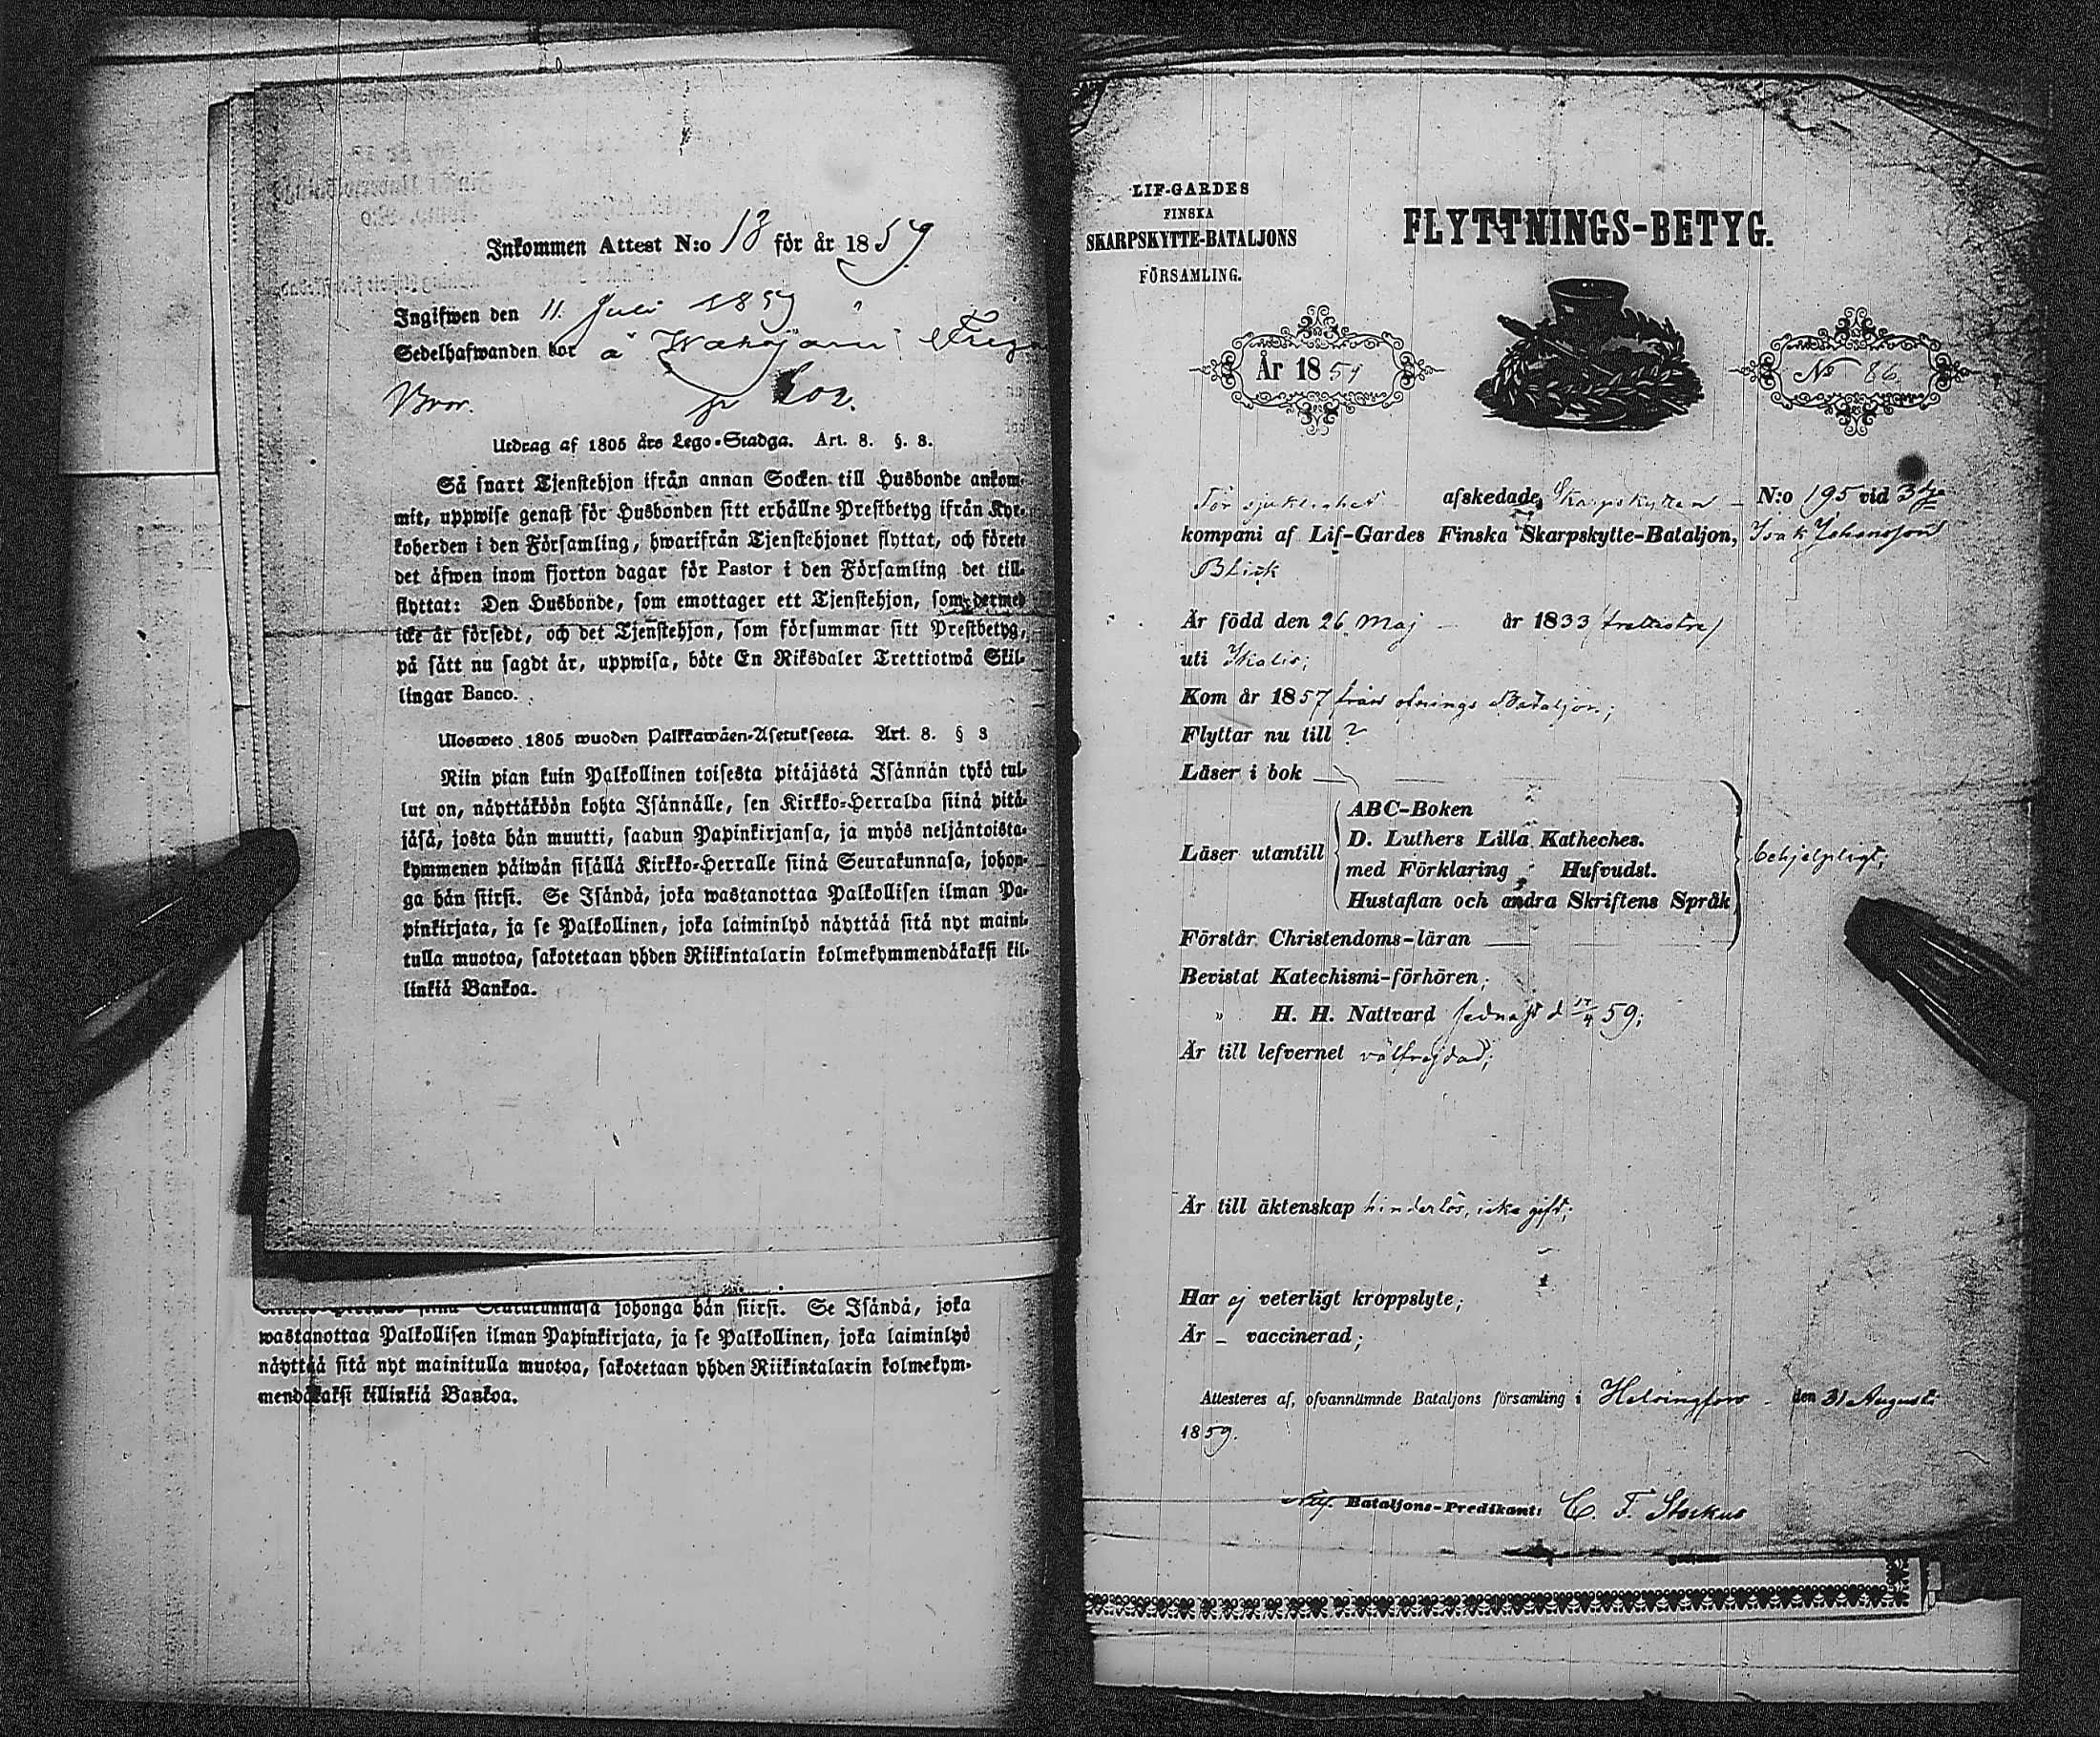 Inkommen Attest N:o 18 för år 1859
Ingifwen den 11. Juli 1859
Sedelhafwanden bor å
Utdrag af 1805 års Lego-Stadga. Art. 8. §. 8.
Så snart Tjenstehjon ifrån annan Socken till Husbonde ankom-
mit, uppwise genast för Husbonden sitt erhållne Prestbetyg ifrån Kyr-
koherden i den Församling, hwarifrån Tjenstehjonet flyttat, och förete
det äfwen inom fjorton dagar för Pastor i den Församling det till-
flyttat: Den Husbonde, som emottager ett Tjenstehjon, som dermed
icke är försedt, och det Tjenstehjon, som försummar sitt Prestbetyg,
på sätt nu sagdt är, uppwisa, böte En Riksdaler Trettiotwå Skil-
lingar Banco.
Ulosweto 1805 wuoden Palkkawäen-Asetuksesta. Art. 8. § 8
Niin pian kuin Palkollinen toisesta pitäjästä Isännän tykö tul-
lut on, näyttäköön kohta Isännälle, sen Kirkko-Herralda siinä pitä-
jäsä, josta hän muutti, saadun Papinkirjansa, ja myös neljäntoista-
kymmenen päiwän sisällä Kirkko-Herralle siinä Seurakunnasa, johon-
ga hän siirsi. Se Isändä, joka wastanottaa Palkollisen ilman Pa-
pinkirjata, ja se Palkollinen, joka laiminlyö näyttää sitä nyt maini-
tulla muotoa, sakotetaan yhden Riikintalarin kolmekymmendäkaksi kil-
linkiä Bankoa.
Seurakunnasa johonga hän siirsi. Se Isändä, joka
wastanottaa Palkollisen ilman Papinkirjata, ja se Palkollinen, joka laiminlyö
näyttää sitä nyt mainitulla muotoa, sakotetaan yhden Riikintalarin kolmekym-
mendäkaksi killinkiä Bankoa.
LIF-GARDES
FINSKA
SKARPSKYTTE-BATALJONS
FÖRSAMLING.
FLYTTNINGS-BETYG.
År 1859
No 86.
För sjuklighet afskedade Skarpskytten N:o 195 vid 3dje
kompani af Lif-Gardes Finska Skarpskytte-Bataljon, Isak Johansson
Blick
Är född den 26 Maj år 1833 (trettiotre)
uti Ikalis;
Kom år 1857 från Bataljon;
Flyttar nu till ?
Läser i bok
Läser utantill
ABC-Boken
D. Luthers Lilla Katheches.
med Förklaring Hufvudst.
Hustaflan och andra Skriftens Språk
behjelpligt;
Förstår Christendoms-läran
Bevistat Katechismi-förhören;
" H. H. Nattvard sednast d 17/4 59;
Är till lefvernet välfrejdad;
Är till äktenskap hinderlös, icke gift;
Har ej veterligt kroppslyte;
Är – vaccinerad;
Attesteres af, ofvannämnde Bataljons församling i Helsingfors den 31 Augusti
1859.
Bataljons-Predikant: C. F.